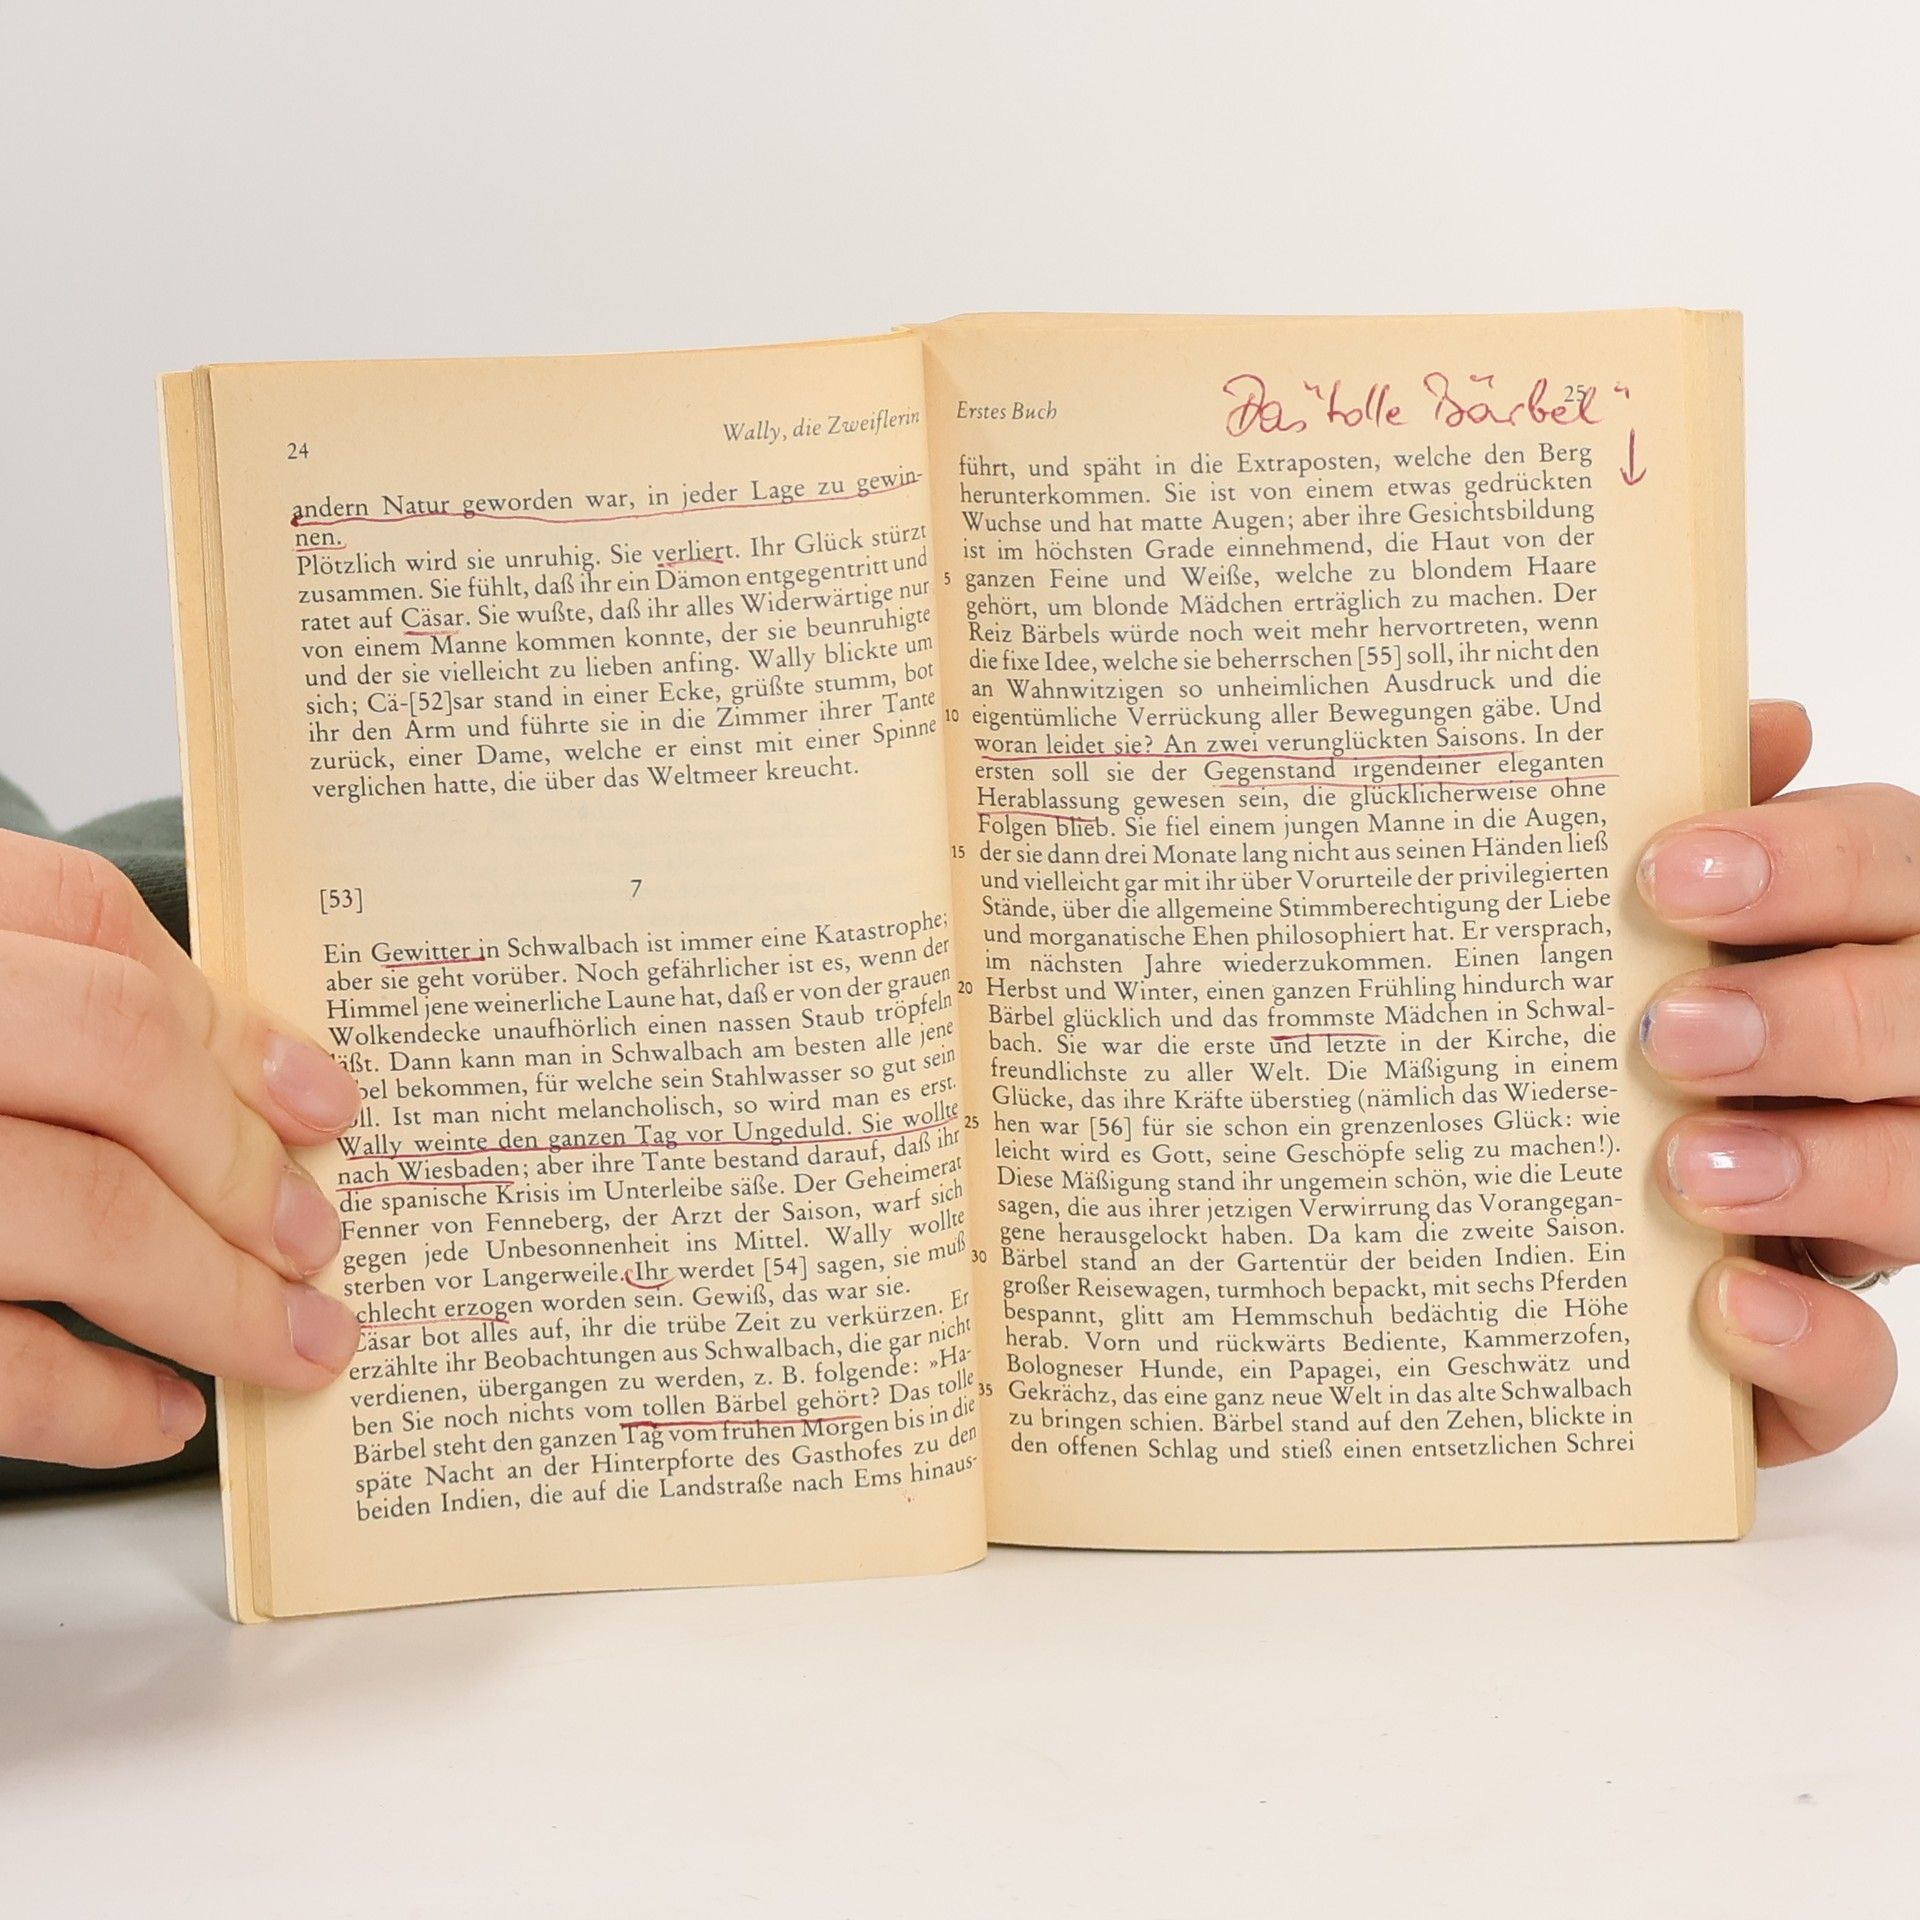 24
Wally, die Zweiflerin
andern Natur geworden war, in jeder Lage zu gewin-
nen.
Plötzlich wird sie unruhig. Sie verliert. Ihr Glück stürzt
zusammen. Sie fühlt, daß ihr ein Dämon entgegentritt und
ratet auf Cäsar. Sie wußte, daß ihr alles Widerwärtige nur
von einem Manne kommen konnte, der sie beunruhigte
und der sie vielleicht zu lieben anfing. Wally blickte um
sich; Cä-[52]sar stand in einer Ecke, grüßte stumm, bot
ihr den Arm und führte sie in die Zimmer ihrer Tante
zurück, einer Dame, welche er einst mit einer Spinne
verglichen hatte, die über das Weltmeer kreucht.
[53] 7
Ein Gewitter in Schwalbach ist immer eine Katastrophe;
aber sie geht vorüber. Noch gefährlicher ist es, wenn der
Himmel jene weinerliche Laune hat, daß er von der grauen
Wolkendecke unaufhörlich einen nassen Staub tröpfeln
läßt. Dann kann man in Schwalbach am besten alle jene
bel bekommen, für welche sein Stahlwasser so gut sein
oll. Ist man nicht melancholisch, so wird man es erst.
Wally weinte den ganzen Tag vor Ungeduld. Sie wollte
nach Wiesbaden; aber ihre Tante bestand darauf, daß ihr
die spanische Krisis im Unterleibe säße. Der Geheimerat
Fenner von Fenneberg, der Arzt der Saison, warf sich
gegen jede Unbesonnenheit ins Mittel. Wally wollte
sterben vor Langerweile. Ihr werdet [54] sagen, sie muß
chlecht erzogen worden sein. Gewiß, das war sie.
Cäsar bot alles auf, ihr die trübe Zeit zu verkürzen. Er
erzählte ihr Beobachtungen aus Schwalbach, die gar nicht
verdienen, übergangen zu werden, z. B. folgende: »Ha-
ben Sie noch nichts vom tollen Bärbel gehört? Das tolle
Bärbel steht den ganzen Tag vom frühen Morgen bis in die
späte Nacht an der Hinterpforte des Gasthofes zu den
beiden Indien, die auf die Landstraße nach Ems hinaus-
Erstes Buch
25
Das "tolle Bärbel"
führt, und späht in die Extraposten, welche den Berg
herunterkommen. Sie ist von einem etwas gedrückten
Wuchse und hat matte Augen; aber ihre Gesichtsbildung
ist im höchsten Grade einnehmend, die Haut von der
5 ganzen Feine und Weiße, welche zu blondem Haare
gehört, um blonde Mädchen erträglich zu machen. Der
Reiz Bärbels würde noch weit mehr hervortreten, wenn
die fixe Idee, welche sie beherrschen [55] soll, ihr nicht den
an Wahnwitzigen so unheimlichen Ausdruck und die
10 eigentümliche Verrückung aller Bewegungen gäbe. Und
woran leidet sie? An zwei verunglückten Saisons. In der
ersten soll sie der Gegenstand irgendeiner eleganten
Herablassung gewesen sein, die glücklicherweise ohne
Folgen blieb. Sie fiel einem jungen Manne in die Augen,
15 der sie dann drei Monate lang nicht aus seinen Händen ließ
und vielleicht gar mit ihr über Vorurteile der privilegierten
Stände, über die allgemeine Stimmberechtigung der Liebe
und morganatische Ehen philosophiert hat. Er versprach,
im nächsten Jahre wiederzukommen. Einen langen
20 Herbst und Winter, einen ganzen Frühling hindurch war
Bärbel glücklich und das frommste Mädchen in Schwal-
bach. Sie war die erste und letzte in der Kirche, die
freundlichste zu aller Welt. Die Mäßigung in einem
Glücke, das ihre Kräfte überstieg (nämlich das Wiederse-
25 hen war [56] für sie schon ein grenzenloses Glück: wie
leicht wird es Gott, seine Geschöpfe selig zu machen!).
Diese Mäßigung stand ihr ungemein schön, wie die Leute
sagen, die aus ihrer jetzigen Verwirrung das Vorangegan-
gene herausgelockt haben. Da kam die zweite Saison.
30 Bärbel stand an der Gartentür der beiden Indien. Ein
großer Reisewagen, turmhoch bepackt, mit sechs Pferden
bespannt, glitt am Hemmschuh bedächtig die Höhe
herab. Vorn und rückwärts Bediente, Kammerzofen,
Bologneser Hunde, ein Papagei, ein Geschwätz und
35 Gekrächz, das eine ganz neue Welt in das alte Schwalbach
zu bringen schien. Bärbel stand auf den Zehen, blickte in
den offenen Schlag und stieß einen entsetzlichen Schrei